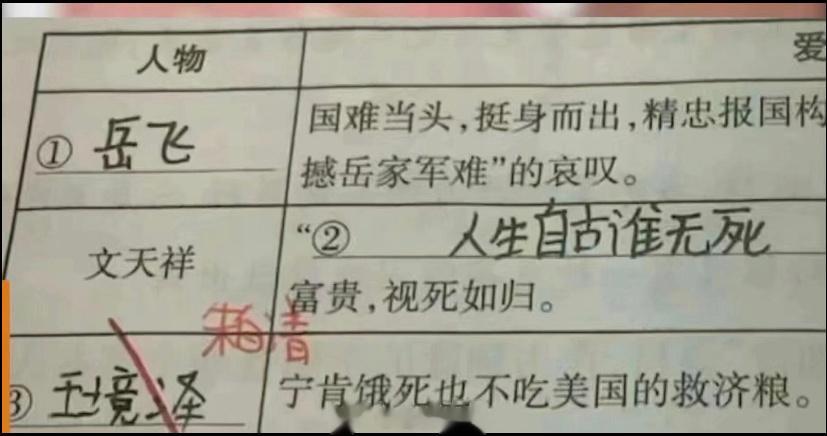 人物
爱
① 岳飞
国难当头,挺身而出,精忠报国构
撼岳家军难”的哀叹。
文天祥
“② 人生自古谁无死
富贵,视死如归。
朱自清
③ 王境泽
宁肯饿死也不吃美国的救济粮。